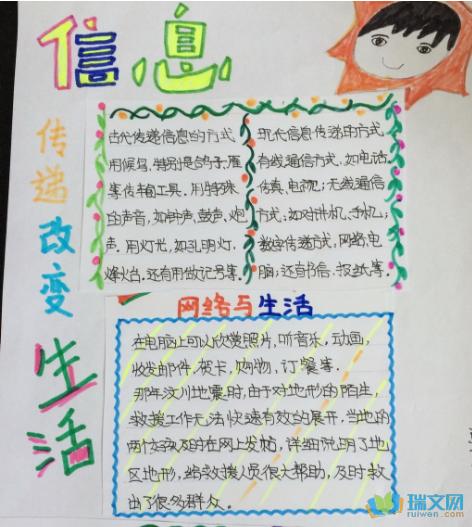 信息
传递改变生活
古代传递信息的方式
用候鸟,特别是鸽子,雁
等传输工具.用特殊
的声音,如钟声,鼓声,炮
声.用灯光,如孔明灯,
烽火台,还有用做记号等.
现代信息传递的方式
有线通信方式,如电话,
传真,电视;无线通信
方式,如对讲机,手机;
数字传递方式,网络,电
脑;还有书信,报纸等.
网络与生活
在电脑上可以欣赏照片,听音乐,动画,
收发邮件,贺卡,购物,订餐等.
那年汶川地震时,由于对地形的陌生
救援工作无法快速有效的展开,当地的
两个孩及时在网上发帖,详细说明了地
区地形,给救援人员很大帮助,及时救
出了很多群众.
瑞文网
ruiwen.com